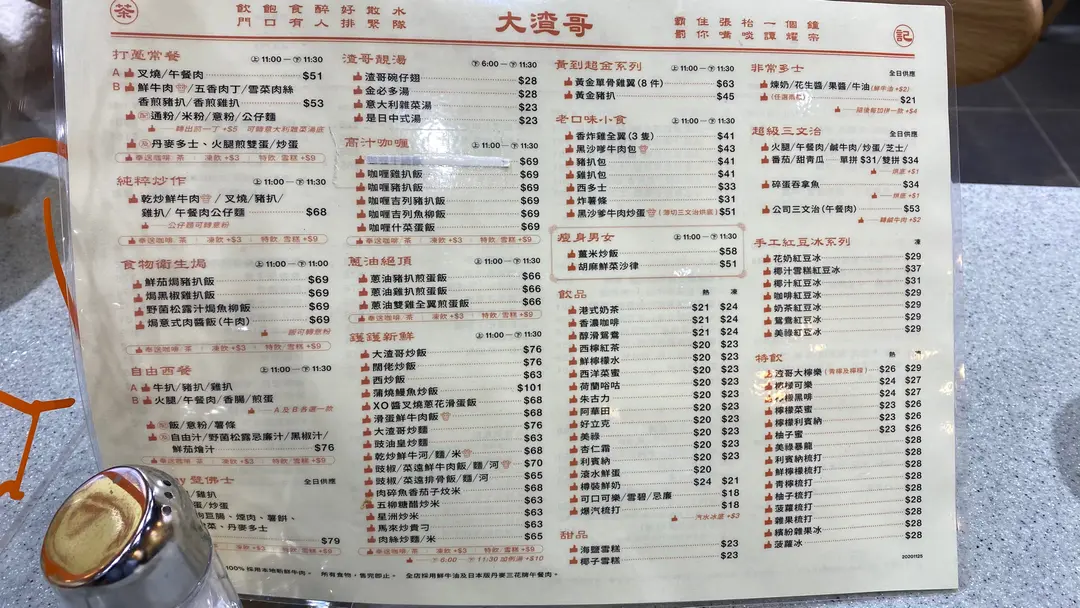 茶
飲飽食醉好散水
門口有人排緊隊
大渣哥
霸住張枱一個鐘
劉你嘴啖譚耀宗
記
打薑常餐 上 11:00 — 下 11:30
A 叉燒/午餐肉 $51
B 鮮牛肉/五香肉丁/雪菜肉絲
香煎豬扒/香煎雞扒 $53
配 通粉/米粉/意粉/公仔麵
轉出前一丁 +$5 可轉意大利雜菜湯底
配 丹麥多士、火腿煎雙蛋/炒蛋
奉送咖啡/茶 凍飲+$3 特飲/雪糕+$9
純粹炒作 上 11:00 — 下 11:30
乾炒鮮牛肉/叉燒/豬扒/
雞扒/午餐肉公仔麵 $68
公仔麵可轉意粉
奉送咖啡/茶 凍飲+$3 特飲/雪糕+$9
食物衞生焗 上 11:00 — 下 11:30
鮮茄焗豬扒飯 $69
焗黑椒雞扒飯 $69
野菌松露汁焗魚柳飯 $69
焗意式肉醬飯(牛肉) $69
飯可轉意粉
奉送咖啡/茶 凍飲+$3 特飲/雪糕+$9
自由西餐 上 11:00 — 下 11:30
A 牛扒/豬扒/雞扒
B 火腿/午餐肉/香腸/煎蛋
A及B各選一款
配 飯/意粉/薯條
配 自由汁/野菌松露忌廉汁/黑椒汁/
鮮茄燴汁 $76
奉送咖啡/茶 凍飲+$3 特飲/雪糕+$9
雙佛士 全日供應
雞扒
/炒蛋
豆腸、煙肉、薯餅、
菜、丹麥多士
$79
凍飲+$3 特飲/雪糕+$9
渣哥靚湯 下 6:00 — 下 11:30
渣哥碗仔翅 $28
金必多湯 $28
意大利雜菜湯 $23
是日中式湯 $23
高汁咖喱 上 11:00 — 下 11:30
$69
咖喱雞扒飯 $69
咖喱豬扒飯 $69
咖喱吉列豬扒飯 $69
咖喱吉列魚柳飯 $69
咖喱什菜蛋飯 $69
奉送咖啡/茶 凍飲+$3 特飲/雪糕+$9
蔥油絕頂 上 11:00 — 下 11:30
蔥油豬扒煎蛋飯 $66
蔥油雞扒煎蛋飯 $66
蔥油雙雞全翼煎蛋飯 $66
奉送咖啡/茶 凍飲+$3 特飲/雪糕+$9
鑊鑊新鮮 上 11:00 — 下 11:30
大渣哥炒飯 $76
闊佬炒飯 $76
西炒飯 $63
蒲燒鰻魚炒飯 $101
XO醬叉燒蔥花滑蛋飯 $68
滑蛋鮮牛肉飯 $68
大渣哥炒麵 $76
豉油皇炒麵 $63
乾炒鮮牛河/麵/米 $68
豉椒/菜遠鮮牛肉飯/麵/河 $70
豉椒/菜遠排骨飯/麵/河 $65
肉碎魚香茄子炆米 $68
五柳糖醋炒米 $63
星洲炒米 $63
馬來炒貴刁 $63
肉絲炒麵/米 $65
奉送咖啡/茶 凍飲+$3 特飲/雪糕+$9
下 6:00 — 下 11:30 加例湯+$10
黃到超金系列 上 11:00 — 下 11:30
黃金單骨雞翼(8件) $63
黃金豬扒 $45
老口味小食 上 11:00 — 下 11:30
香炸雞全翼(3隻) $41
黑沙爹牛肉包 $43
豬扒包 $41
雞扒包 $41
西多士 $33
炸薯條 $31
黑沙爹牛肉炒蛋(薄切三文治烘底) $51
瘦身男女 上 11:00 — 下 11:30
薑米炒飯 $58
胡麻鮮菜沙律 $51
飲品 熱 凍
港式奶茶 $21 $24
香濃咖啡 $21 $24
醇滑鴛鴦 $21 $24
西檸紅茶 $20 $23
鮮檸檬水 $20 $23
西洋菜蜜 $20 $23
荷蘭谷咕 $20 $23
朱古力 $20 $23
阿華田 $20 $23
好立克 $20 $23
美祿 $20 $23
杏仁霜 $20 $23
利賓納 $20 $23
滾水鮮蛋 $20
樽裝鮮奶 $24 $21
可口可樂/雪碧/忌廉 $18
爆汽梳打 $18
汽水冰底+$3
甜品
海鹽雪糕 $23
椰子雪糕 $23
非常多士 全日供應
煉奶/花生醬/果醬/牛油(鮮牛油+$2)
(任選兩款) $21
隨後每加拼一款+$4
超級三文治 全日供應
火腿/午餐肉/鹹牛肉/炒蛋/芝士/
番茄/甜青瓜 — 單拼$31/雙拼$34
烘底+$1
碎蛋吞拿魚 $34
烘底+$1
公司三文治(午餐肉) $53
轉鹹牛肉+$2
手工紅豆冰系列 凍
花奶紅豆冰 $29
椰汁雪糕紅豆冰 $37
椰汁紅豆冰 $31
咖啡紅豆冰 $29
奶茶紅豆冰 $29
鴛鴦紅豆冰 $29
美祿紅豆冰 $29
特飲 熱 凍
渣哥大檸樂(青檸及檸檬) $26 $29
檸檬可樂 $24 $27
檸檬黑啡 $24 $27
檸檬菜蜜 $23 $26
檸檬利賓納 $23 $26
柚子蜜 $23 $26
美祿暴龍 $28
利賓納梳打 $28
鮮檸檬梳打 $28
青檸梳打 $28
柚子梳打 $28
菠蘿梳打 $28
雜果梳打 $28
繽紛雜果冰 $28
菠蘿冰 $28
20201125
100%採用本地新鮮牛肉。 所有食物,售完即止。 全店採用鮮牛油及日本版丹麥三花牌午餐肉。